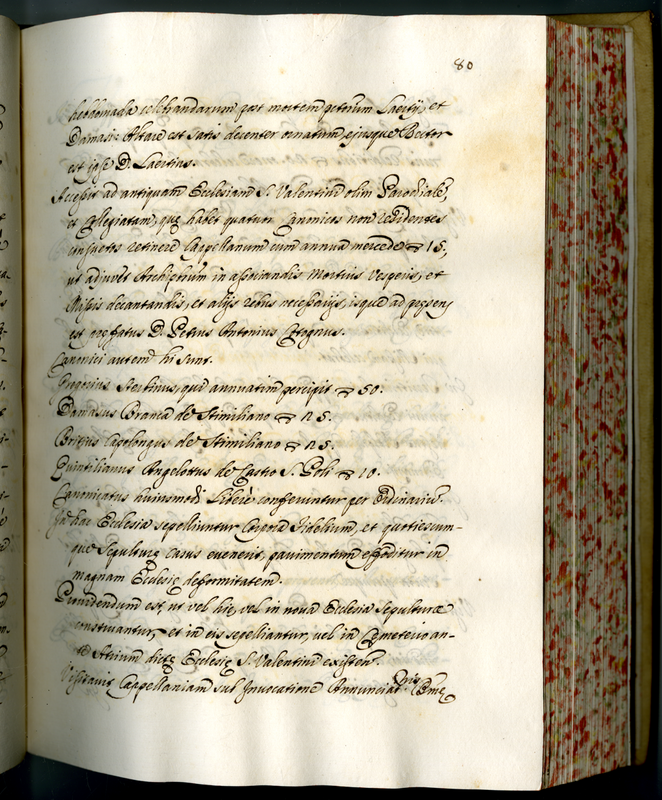 80
hebdomada celebrandarum post mortem petrum Laertij, et
Damasi: Altare est satis decenter ornatum, ejusque Rector
est ipse D. Laertius.
Accessit ad antiquam Ecclesiam S. Valentini olim Parochialē,
et Collegiatam, quę habet quatuor Canonicos non residentes
consuetos retinere Cappellanum cum annua mercede 15,
ut adjuvet Archipbrum in associandis Mortuis Vesperis, et
Missis decantandis, et alijs rebus necessarijs, isque ad pręsens
est pręfatus D. Petrus Antonius
Canonici autem hi sunt.
qui annuatim percipit 50.
Damasus Branca de Stimiliano 25.
Capolongus de Stimiliano 25.
Quintilianus Angelottus de Castro S. Poli 10.
Canonicatus huiusmodi liberè conferuntur per Ordinariū.
In hac Ecclesia sepelliuntur Corpora Fidelium, et quotiescum-
que Sepulturę casus evenerit, pavimentum effoditur in
magnam Ecclesię deformitatem.
Providendum est, ut vel hic, vel in nova Ecclesia sepulturæ
construantur, et in eis sepelliantur, vel in Cęmeterio an-
te Atrium dictę Ecclesię S. Valentini existen.
Visitavit Cappellaniam sub Invocatione Annunciat. Bmę
Vrīs